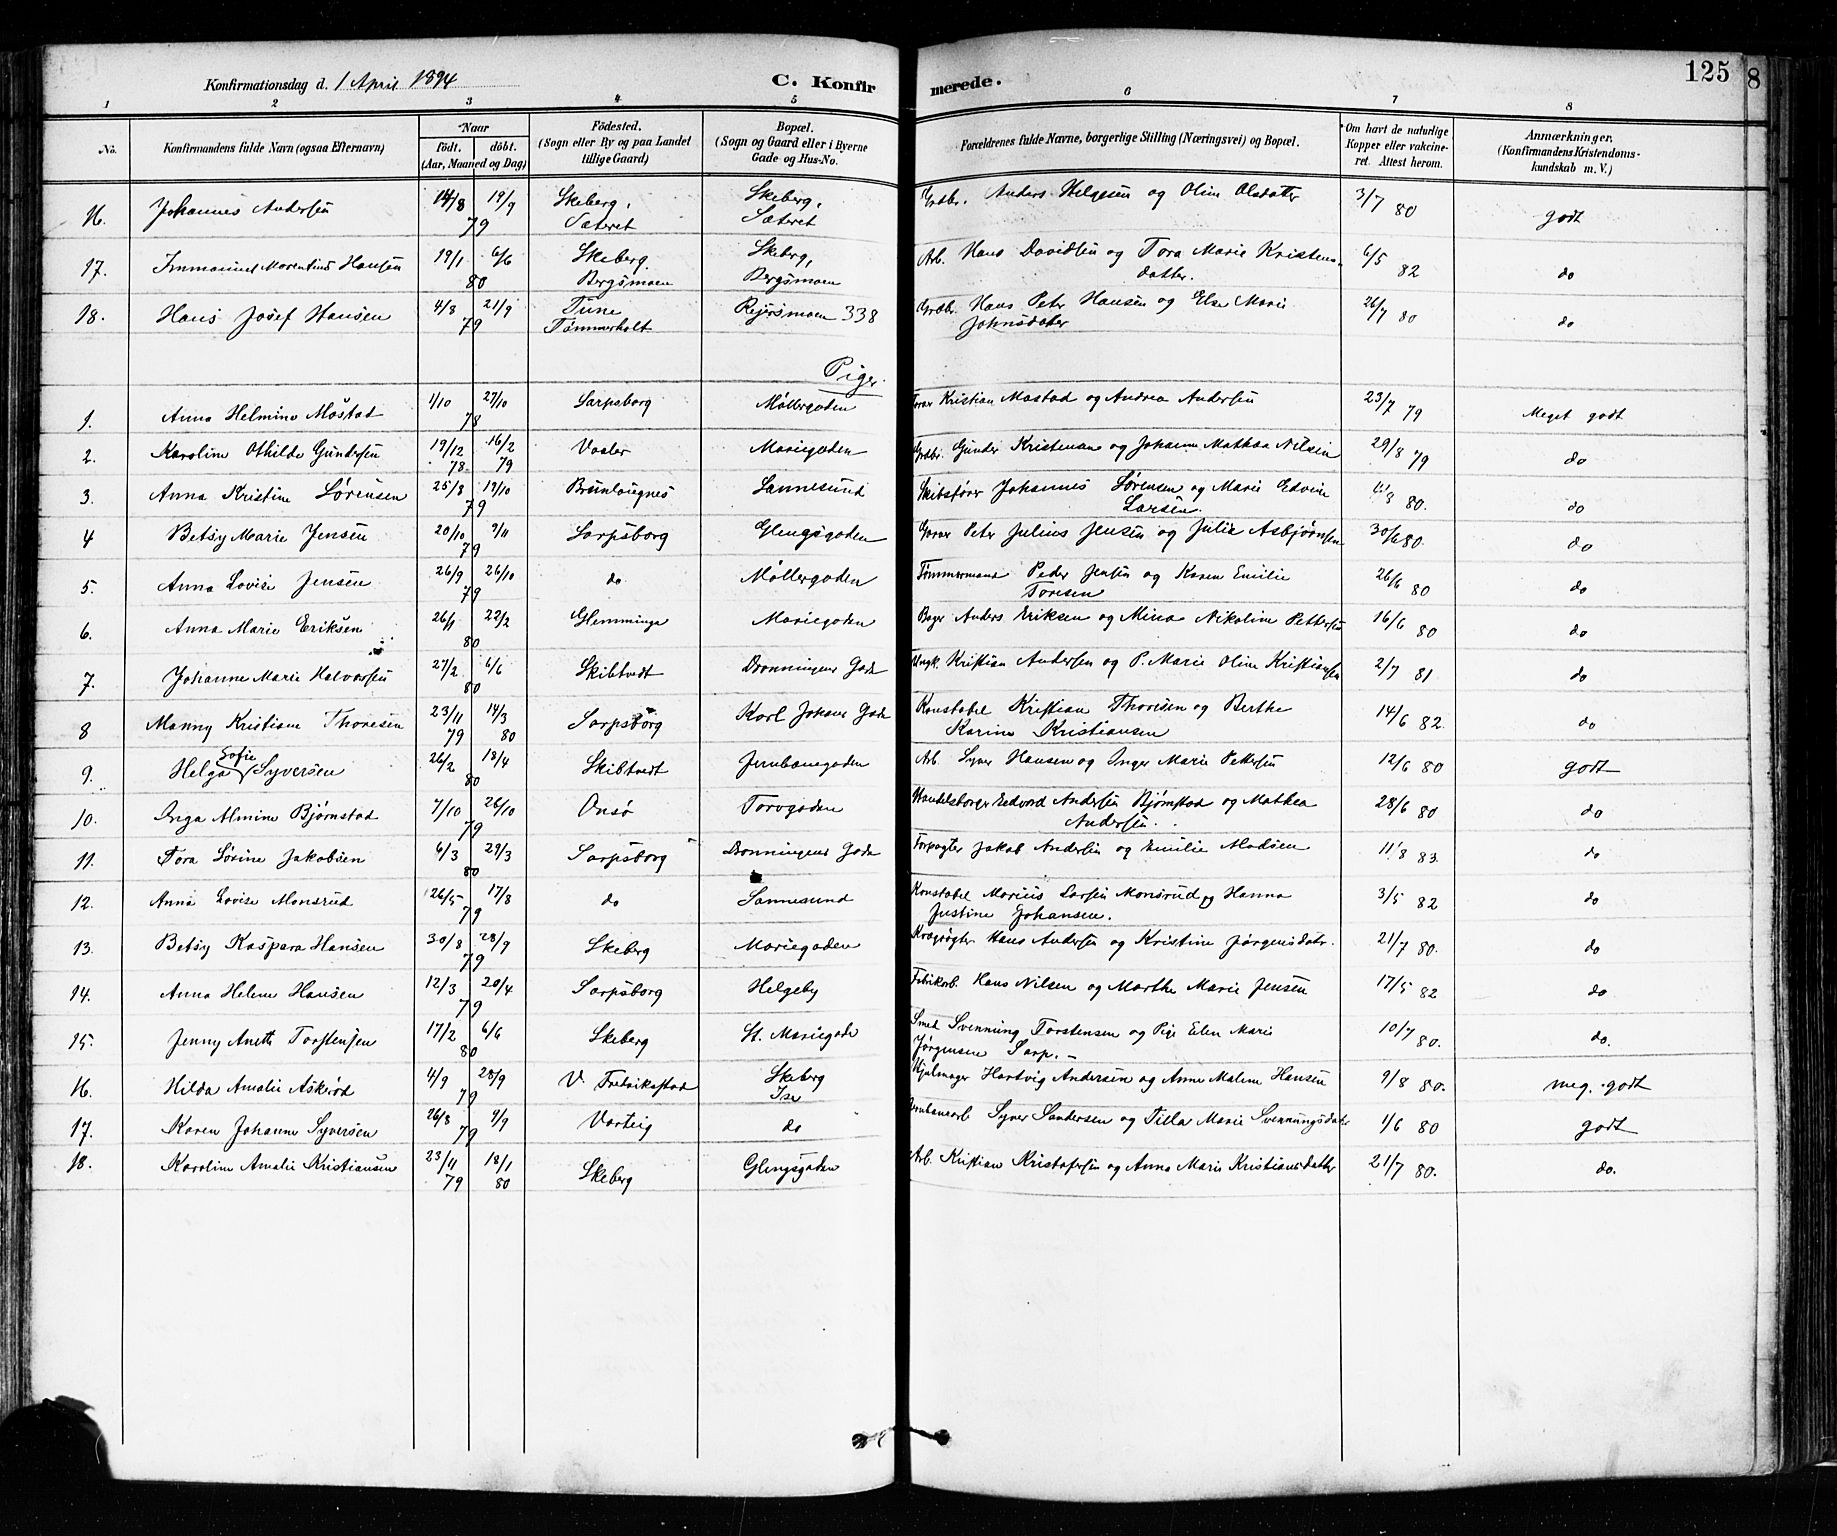 Konfirmationsdag d. 1 April 1894 C. Konfirmerede. 125
1 2 3 4 5 6 7 8
No. Konfirmandens fulde Navn (ogsaa Efternavn) Naar født. døbt. (Aar, Maaned og Dag) Fødested. (Sogn eller By og paa Landet tillige Gaard) Bopæl. (Sogn og Gaard eller i Byerne Gade og Hus-No. Forældrenes fulde Navne, borgerlige Stilling (Næringsvei) og Bopæl. Om havt de naturlige Kopper eller vakcineret. Attest herom. Anmærkninger, (Konfirmandens Kristendomskundskab m. V.)
16. Johannes Andersen 14/8 19/9 79 Skeberg, Sæteret Skeberg, Sæteret Grdbr. Anders Helgesen og Oline Olsdatter 3/7 80 godt
17. Immanuel Marentius Hansen 19/1 6/6 80 Skeberg. Bergsmoen Skeberg, Bergsmoen Arb. Hans Davidsen og Tora Marie Kristensdatter. 6/5 82 do
18. Hans Josef Hansen 4/8 21/9 79 Tune Tømmerholt Rejersmoen 338 Grdbr. Hans Peter Hansen og Else Marie Johnsdater 26/7 80 do
Piger.
1. Anna Helmine Mostad 1/10 27/10 78 Sarpsborg Møllergaden Kristian Mostad og Andrea Andersen 23/7 79 Meget godt
2. Karoline Othilde Gundersen 19/12 78 16/2 79 Vaaler Mariegaden Grdbr. Gunder Kristensen og Johanne Mathea Nilsen 29/8 79 do
3. Anna Kristine Sørensen 25/8 19/10 79 Brunlaugnes Sannesund Skibsfører Johannes Sørensen og Marie Edvine Larsen. 80. do
4 Betsy Marie Jensen 20/10 9/11 79 Sarpsborg Glengsgaden Garver Peter Julius Jensen og Julie Asbjørnsen 30/6 80. do
5. Anna Lovise Jensen 26/9 26/10 79 do Møllergaden Tømmermand Peder Jensen og Karen Emilie Toresen 26/6 80 do
6. Anna Marie Eriksen 26/1 22/2 80 Glemminge Mariegaden Bager Anders Eriksen og Mina Nikoline Pettersen 16/6 80 do
7. Johanne Marie Halvorsen 27/2 6/6 80 Skibtvedt Dronningens Gade Ungk. Kristian Andersen og P. Marie Oline Kristiansen 2/7 81 do
8 Manny Kristiane Thoresen 23/11 79 14/3 80 Sarpsborg Karl Johans Gade Konstabel Kristian Thoresen og Berthe Karine Kristiansen 14/6 82. do
9. Helga Sofie Syversen 26/2 18/4 80 Skibtvedt Jernbanegaden Arb. Syver Hansen og Inger Marie Pettersen 12/6 80 godt
10. Inga Almine Bjørnstad 7/10 26/10 79 Onsø Torvgaden Handelsborger Edvard Andersen Bjørnstad og Mathea Andersen. 28/6 80 do
11. Tora Sørine Jakobsen 6/3 29/3 80 Sarpsborg Dronningens Gade Forpagter Jakob Andersen og Emilie Madsen 11/8 83. do
12. Anna Lovise Monsrud 26/5 17/8 79 do Sannesund Konstabel Marius Larsen Monsrud og Hanna Justine Johansen. 3/5 82 do
13. Betsy Kaspara Hansen 30/8 28/9 79 Skeberg Mariegaden Hans Andersen og Kristine Jørgensdatr. 21/7 80. do
14. Anna Helene Hansen 12/3 20/4 79 Sarpsborg Helgeby Fabrikarb. Hans Nilsen og Marthe Marie Jensen 17/5 82 do
15. Jenny Anette Torstensen 17/2 6/6 80 Skeberg St. Mariegade Smed Svenning Torstensen og Pige Elen Marie Jørgensen Sarp. – 10/7 80. do.
16. Hilda Amalie Askerød 4/9 28/9 79 V. Fredrikstad Skeberg Ise Hjulmager Hartvig Andersen og Anne Malene Hansen 9/8 80. meg. godt
17. Karen Johanne Syversen 26/8 9/9 79 Varteig do Jernbanearb Syver Sandersen og Tilla Marie Svenningsdater 1/6 80 godt
18. Karoline Amalie Kristiansen 23/11 79 18/1 80 Skeberg Glengsgaden Arb. Kristian Kristofersen og Anna Marie Kristiansdatter 21/7 80. do.